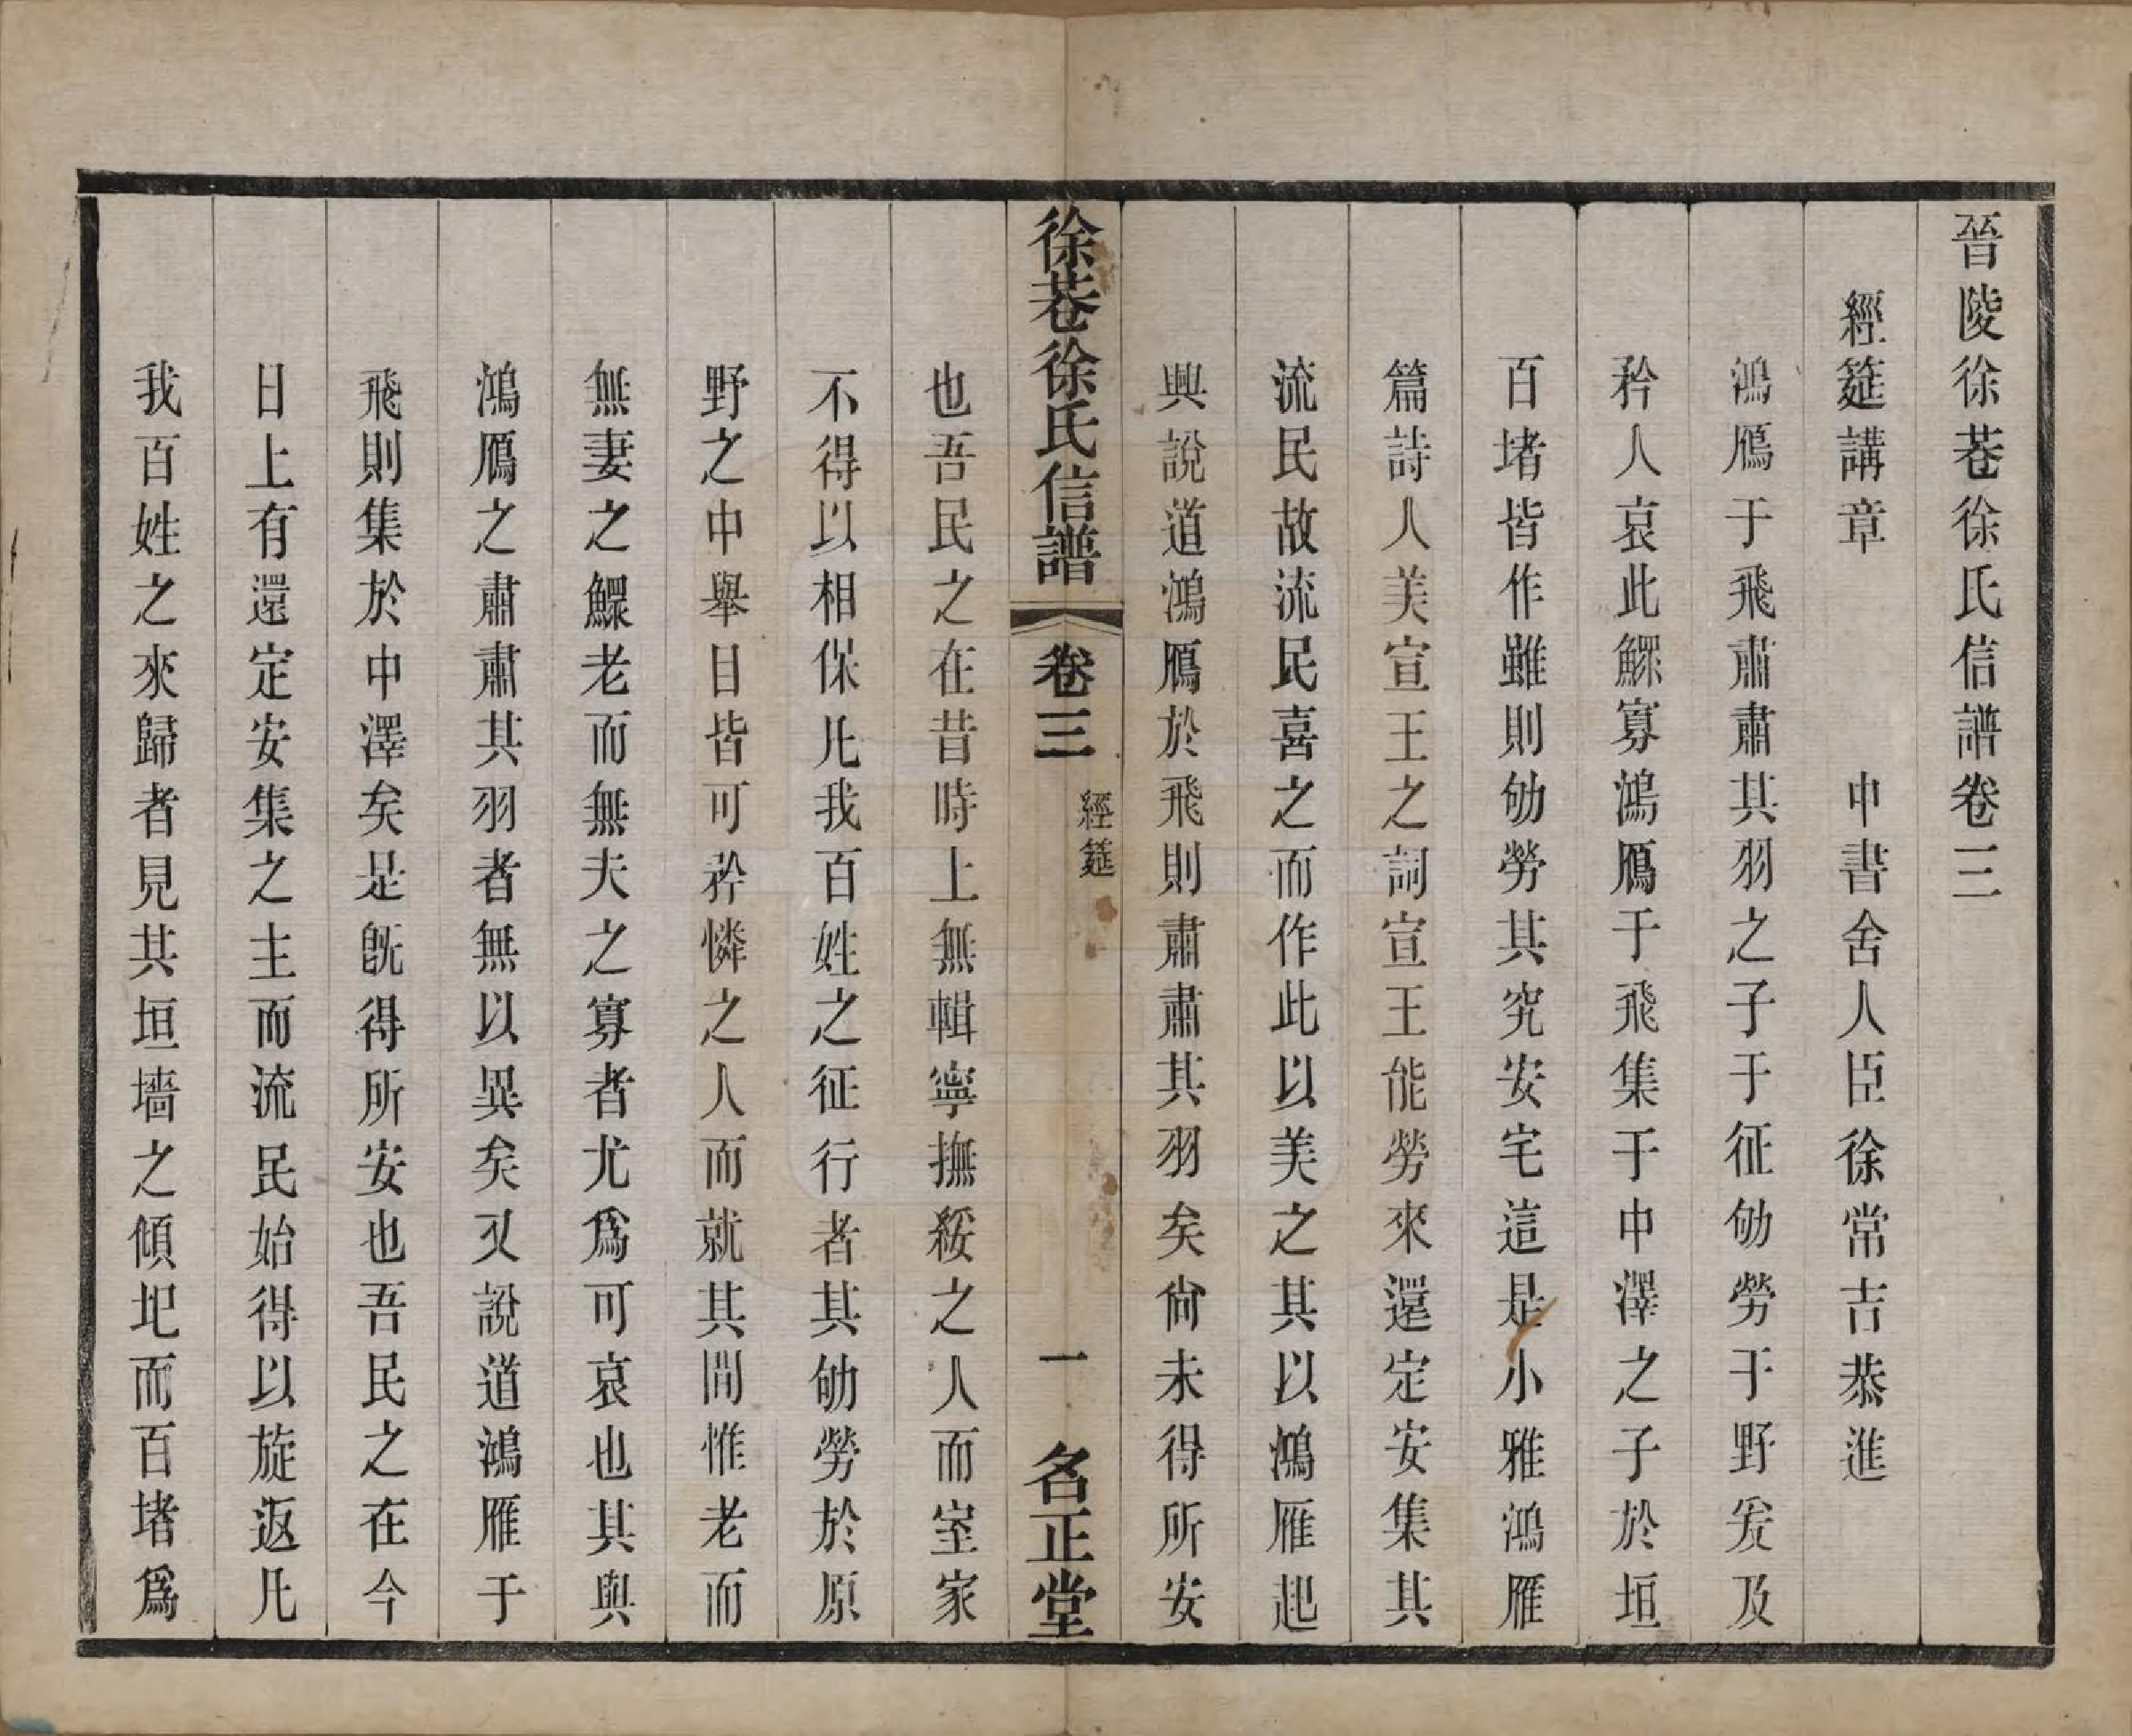 晉陵徐巷徐氏信譜卷三
經筵講章　中書舍人臣徐常吉恭進
鴻鴈于飛肅肅其羽之子于征劬勞于野爰及
矜人哀此鰥寡鴻鴈于飛集于中澤之子於垣
百堵皆作雖則劬勞其究安宅這是小雅鴻雁
篇詩人美宣王之詞宣王能勞來還定安集其
流民故流民喜之而作此以美之其以鴻雁起
興說道鴻鴈於飛則肅肅其羽矣尙未得所安
徐巷徐氏信譜
卷三
經筵
一
名正堂
也吾民之在昔時上無輯寧撫綏之人而室家
不得以相保凡我百姓之征行者其劬勞於原
野之中舉目皆可矜憐之人而就其間惟老而
無妻之鰥老而無夫之寡者尤爲可哀也其與
鴻鴈之肅肅其羽者無以異矣又說道鴻雁于
飛則集於中澤矣是旣得所安也吾民之在今
日上有還定安集之主而流民始得以旋返凡
我百姓之來歸者見其垣墻之傾圯而百堵爲